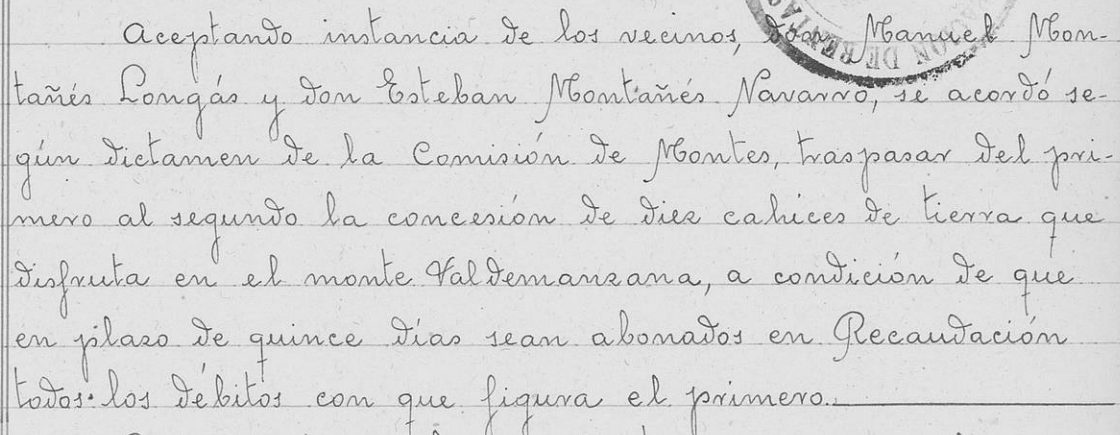 Aceptando instancia de los vecinos, don Manuel Mon-
tañés Longás y don Esteban Montañés Navarro, se acordó se-
gún dictamen de la Comisión de Montes, traspasar del pri-
mero al segundo la concesión de diez cahices de tierra que
disfruta en el monte Valdemanzana, a condición de que
en plazo de quince días sean abonados en Recaudación
todos los débitos con que figura el primero.